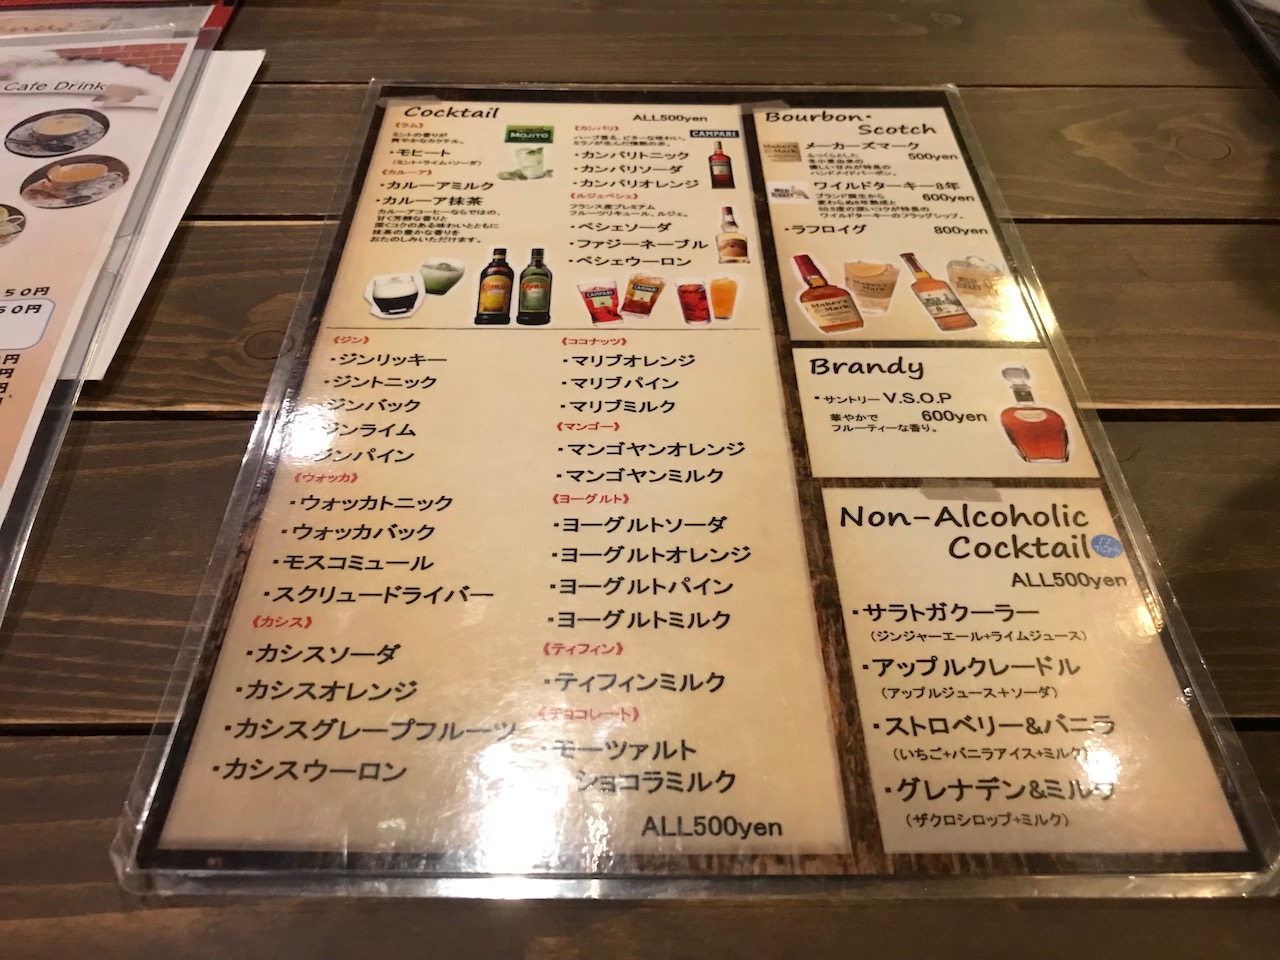 Cafe Drink
50円
50円
円
円
円
Cocktail
ALL500yen
《ラム》
ミントの香りが
爽やかなカクテル。
・モヒート
(ミント・ライム・ソーダ)
MOJITO
《カルーア》
・カルーアミルク
・カルーア抹茶
カルーアコーヒーならではの、
甘く芳醇な香りと
深くコクのある味わいとともに
抹茶の豊かな香りを
おたのしみいただけます。
《カンパリ》
ハーブ香る、ビターな味わい。
ミラノが生んだ情熱の赤。
CAMPARI
・カンパリトニック
・カンパリソーダ
・カンパリオレンジ
《ルジェペシェ》
フランス産プレミアム
フルーツリキュール、ルジェ。
・ペシェソーダ
・ファジーネーブル
・ペシェウーロン
CAMPARI
CAMPARI
《ジン》
・ジンリッキー
・ジントニック
・ジンバック
・ジンライム
・ジンパイン
《ウォッカ》
・ウォッカトニック
・ウォッカバック
・モスコミュール
・スクリュードライバー
《カシス》
・カシスソーダ
・カシスオレンジ
・カシスグレープフルーツ
・カシスウーロン
《ココナッツ》
・マリブオレンジ
・マリブパイン
・マリブミルク
《マンゴー》
・マンゴヤンオレンジ
・マンゴヤンミルク
《ヨーグルト》
・ヨーグルトソーダ
・ヨーグルトオレンジ
・ヨーグルトパイン
・ヨーグルトミルク
《ティフィン》
・ティフィンミルク
《チョコレート》
・モーツァルト
ショコラミルク
ALL500yen
Bourbon・
Scotch
Maker's Mark
メーカーズマーク
500yen
ふっくらとした
冬小麦由来の
優しい甘みが特長の
ハンドメイドバーボン。
WILD TURKEY
ワイルドターキー8年
600yen
ブランド誕生から
変わらぬ8年熟成と
50.5度の深いコクが特長の
ワイルドターキーのフラッグシップ。
・ラフロイグ 800yen
Maker's Mark
Maker's Mark
WILD TURKEY
Brandy
・サントリー V.S.O.P
華やかで 600yen
フルーティーな香り。
Non-Alcoholic
Cocktail
ALL500yen
・サラトガクーラー
(ジンジャーエール+ライムジュース)
・アップルクレードル
(アップルジュース+ソーダ)
・ストロベリー&バニラ
(いちご+バニラアイス+ミルク)
・グレナデン&ミルク
(ザクロシロップ+ミルク)